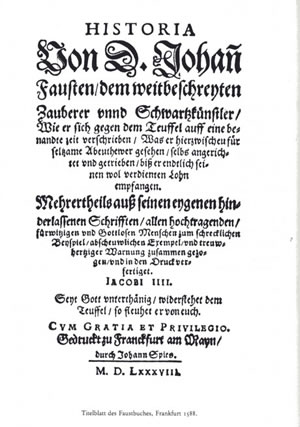 HISTORIA
Von D. Johañ
Fausten/dem weitbeschreyten
Zauberer vnnd Schwartzkünstler/
Wie er sich gegen dem Teuffel auff eine be-
nandte zeit verschrieben/ Was er hierzwischen für
seltzame Abentheuwer gesehen/ selbs angerich-
tet vnd getrieben/ biß er endtlich sei-
nen wol verdienten Lohn
empfangen.
Mehrertheils auß seinen eygenen hin-
derlassenen Schrifften/ allen hochtragenden/
fürwitzigen vnd Gottlosen Menschen zum schrecklichen
Beyspiel/ abscheuwlichen Exempel/ vnd treuw-
hertziger Warnung zusammen gezo-
gen/ vnd in den Druck ver-
fertiget.
IACOBI IIII.
Seyt Gott vnterthänig/ widerstehet dem
Teuffel/ so fleuhet er von euch.
CVM GRATIA ET PRIVILEGIO.
Gedruckt zu Franckfurt am Mayn/
durch Johann Spies.
M. D. LXXXVIII.
Titelblatt des Faustbuches, Frankfurt 1588.